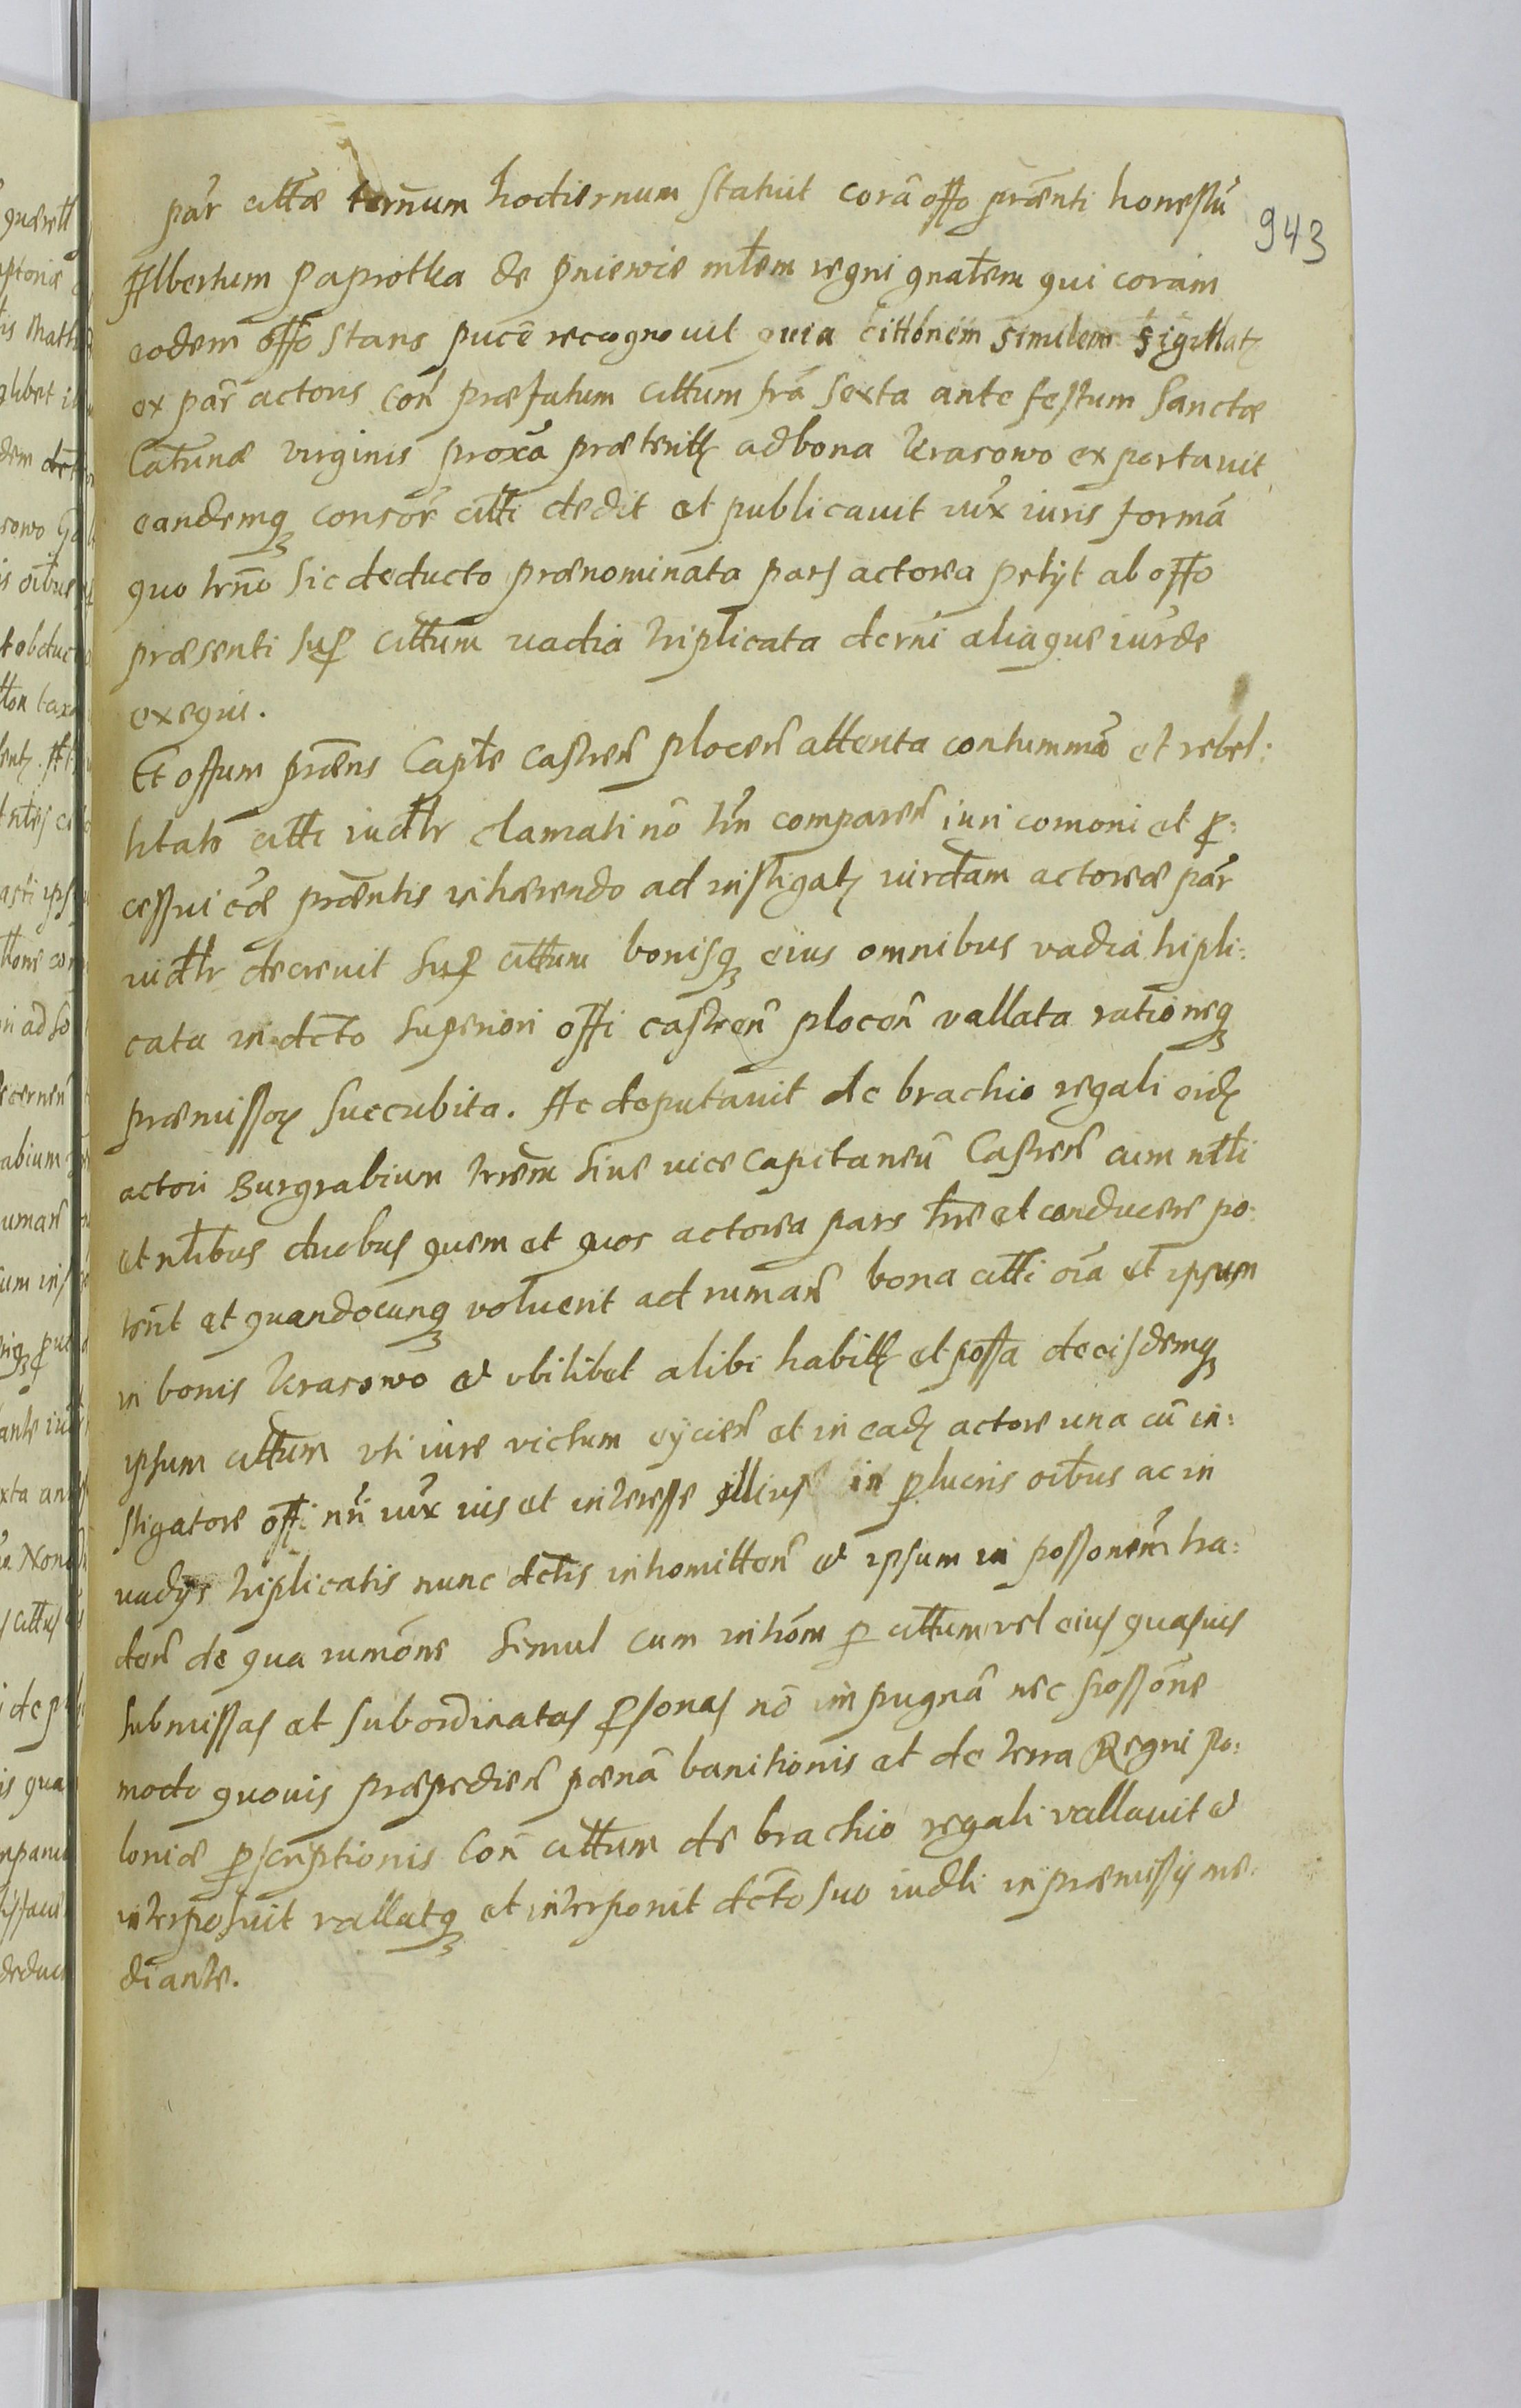 943
par̃ cittae termũum hodiernum statuit corã offo prãenti honestũ
Albertum Paprotka de Pniewie mtem regni gnatem qui coram
eodem offo stans pucẽ recognovit quia cittõnem similem sigillatȝ
ex par̃ actoris con̄ praefatum cittum frã sexta ante festum Sanctae
Catrinae virginis proxã praeteritȝ ad bona Krasowo exportavit
eandemqȝ consor̃ citti dedit et publicavit iux̃ iuris formã
quo trño sic deducto praenominata pars actorea petijt ab offo
praesenti sup̱ cittum vadia triplicata decrni aliaque iur̃de
exequi.
Et offum prãens Capte Castren̄ plocen̄ attenta contummã et rebel:
litatẽ citti iudtr clamati nõ tñ comparen̄ iuri comoni et p̱:
cessui cãe prãentis inhaerendo ad instigatȝ iurdtam actoreae par̃
iudtr decrevit sup̱ cittum bonisqȝ eius omnibus vadia tripli:
cata in dcto superiori offi castren̄ plocen̄ vallata rationeqȝ
praemissorȝ succubita. Ac deputavit de brachio regali eidȝ
actori Burgrabium trrem sive vice Capitaneũ Castren̄ cum ntli
et ntlibus duobus quem et quos actorea pars hre et conducere po:
terit et quandocunqȝ voluerit ad ruman̄ bona citti oĩa et ipsum
in bonis Krasowo et ubilibet alibi habitȝ et possa de eisdemqȝ
ipsum cittum uti iure victum eycien̄ et in eadȝ actore una cũ in:
stigatore offi nri iux̃ vis et interesse illius in p̱ lucris oibus ac in
vadijs triplicatis nunc dctis intromitten̄ et ipsum in possonem tra:
den̄ de qua rumõne simul cum intrõm p̱ cittum vel eius quasuis
submissas et subordinatas p̱sonas nõ impugnã nec possõne
modo quovis praepedien̄ poenã banitionis et de terra Regni po:
loniae p̱scriptionis Con̄ cittum de brachio regali vallavit et
interposuit vallatqȝ et interponit dcto suo iudli in praemissis me:
diante.